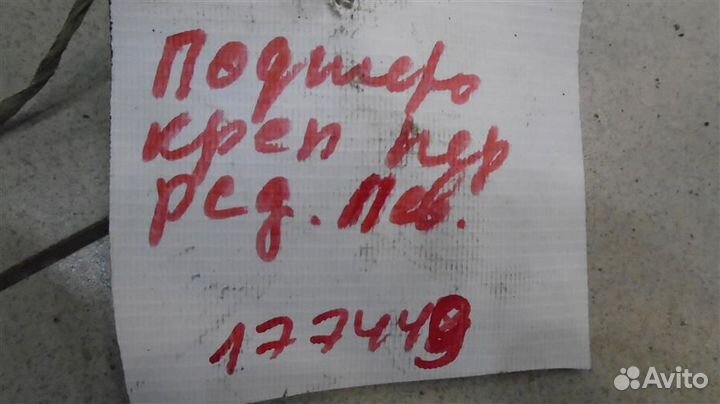 Подшер
креп пер
ред. лев.
177449
Avito